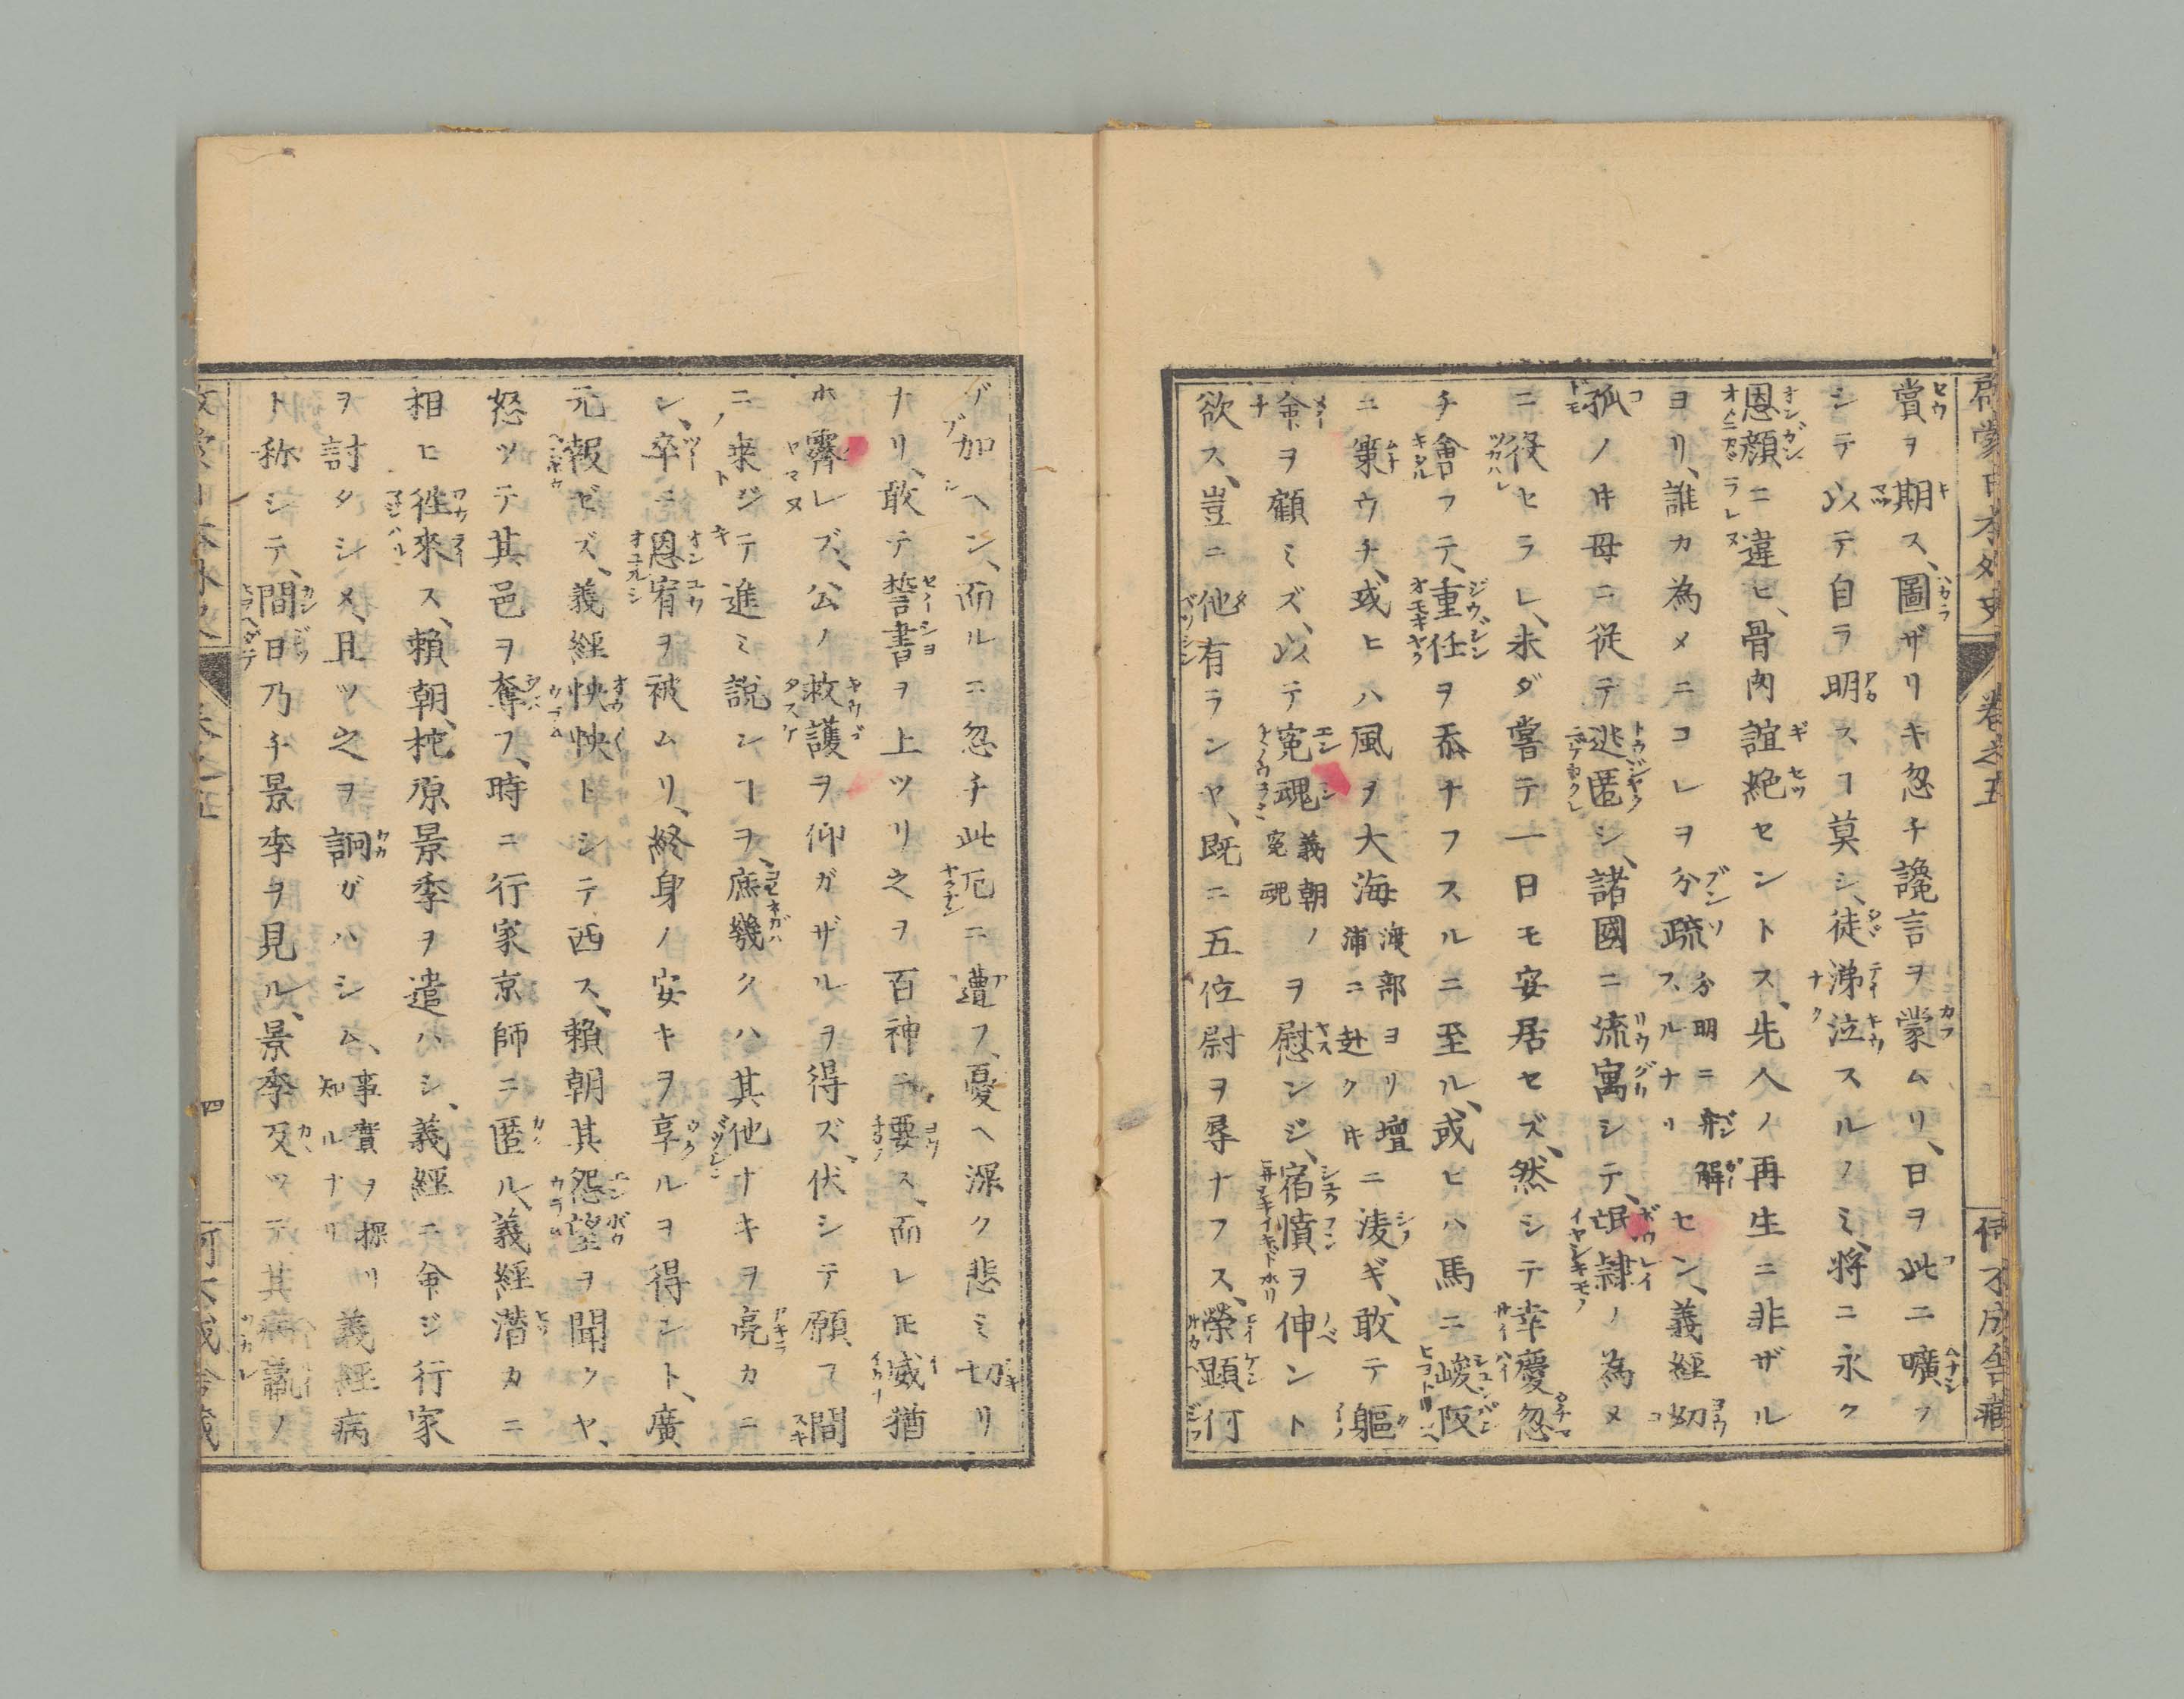 啓蒙日本外史 卷之五
賞ヲ期ス、圖ザリキ忽チ讒言ヲ蒙ムリ、日ヲ此ニ曠フ
シテ以テ自ラ明スヿ莫シ、徒涕泣スルノミ、将ニ永ク
恩顔ニ違ヒ、骨肉誼絶セントス、先人ノ再生ニ非ザル
ヨリ、誰カ為メニコレヲ分疏スルナリ 分明ニ弁解セン、義經幼
孤ノ时母ニ従テ逃匿シ、諸國ニ流寓シテ、氓隷ノ為メ
ニ役セラレ、未ダ嘗テ一日モ安居セズ、然シテ幸慶忽
チ會フテ、重任ヲ忝ナフスルニ至ル、或ヒハ馬ニ峻阪
ニ策ウチ、或ヒハ風ヲ大海 渡部ヨリ壇浦ニ赴クノ时 ニ凌ギ、敢テ軀
命ヲ顧ミズ、以テ冤魂 義朝ノ冤魂 ヲ慰ンジ、宿憤ヲ伸ント
欲ス、豈ニ他有ランヤ、既ニ五位尉ヲ辱ナフス、榮顕何
グ加ヘン、而ルニ忽チ此厄ニ遭フ、憂ヘ深ク悲ミ切リ
ナリ、敢テ誓書ヲ上ツリ之ヲ百神ニ要ス、而レ𪜈威猶
ホ霽レズ、公ノ救護ヲ仰ガザルヲ得ズ、伏シテ願フ間
ニ乗ジテ進ミ説ンヿヲ、庶幾クハ其他ナキヲ亮カニ
シ、卒ニ恩宥ヲ被ムリ、終身ノ安キヲ享ルヲ得ント、廣
元報ゼズ、義經怏怏トシテ西ス、賴朝其怨望ヲ聞クヤ、
怒ツテ其邑ヲ奪フ、時ニ行家京師ニ匿ル、義經潜カニ
相ヒ徃來ス、賴朝、梶原景季ヲ遣ハシ、義經ニ命ジ行家
ヲ討タシメ、且ツ之ヲ詗ガハシム、事實ヲ探リ知ルナリ 義經病
ト称シテ、間日乃チ景季ヲ見ル、景季反ツテ其病羸ノ
四